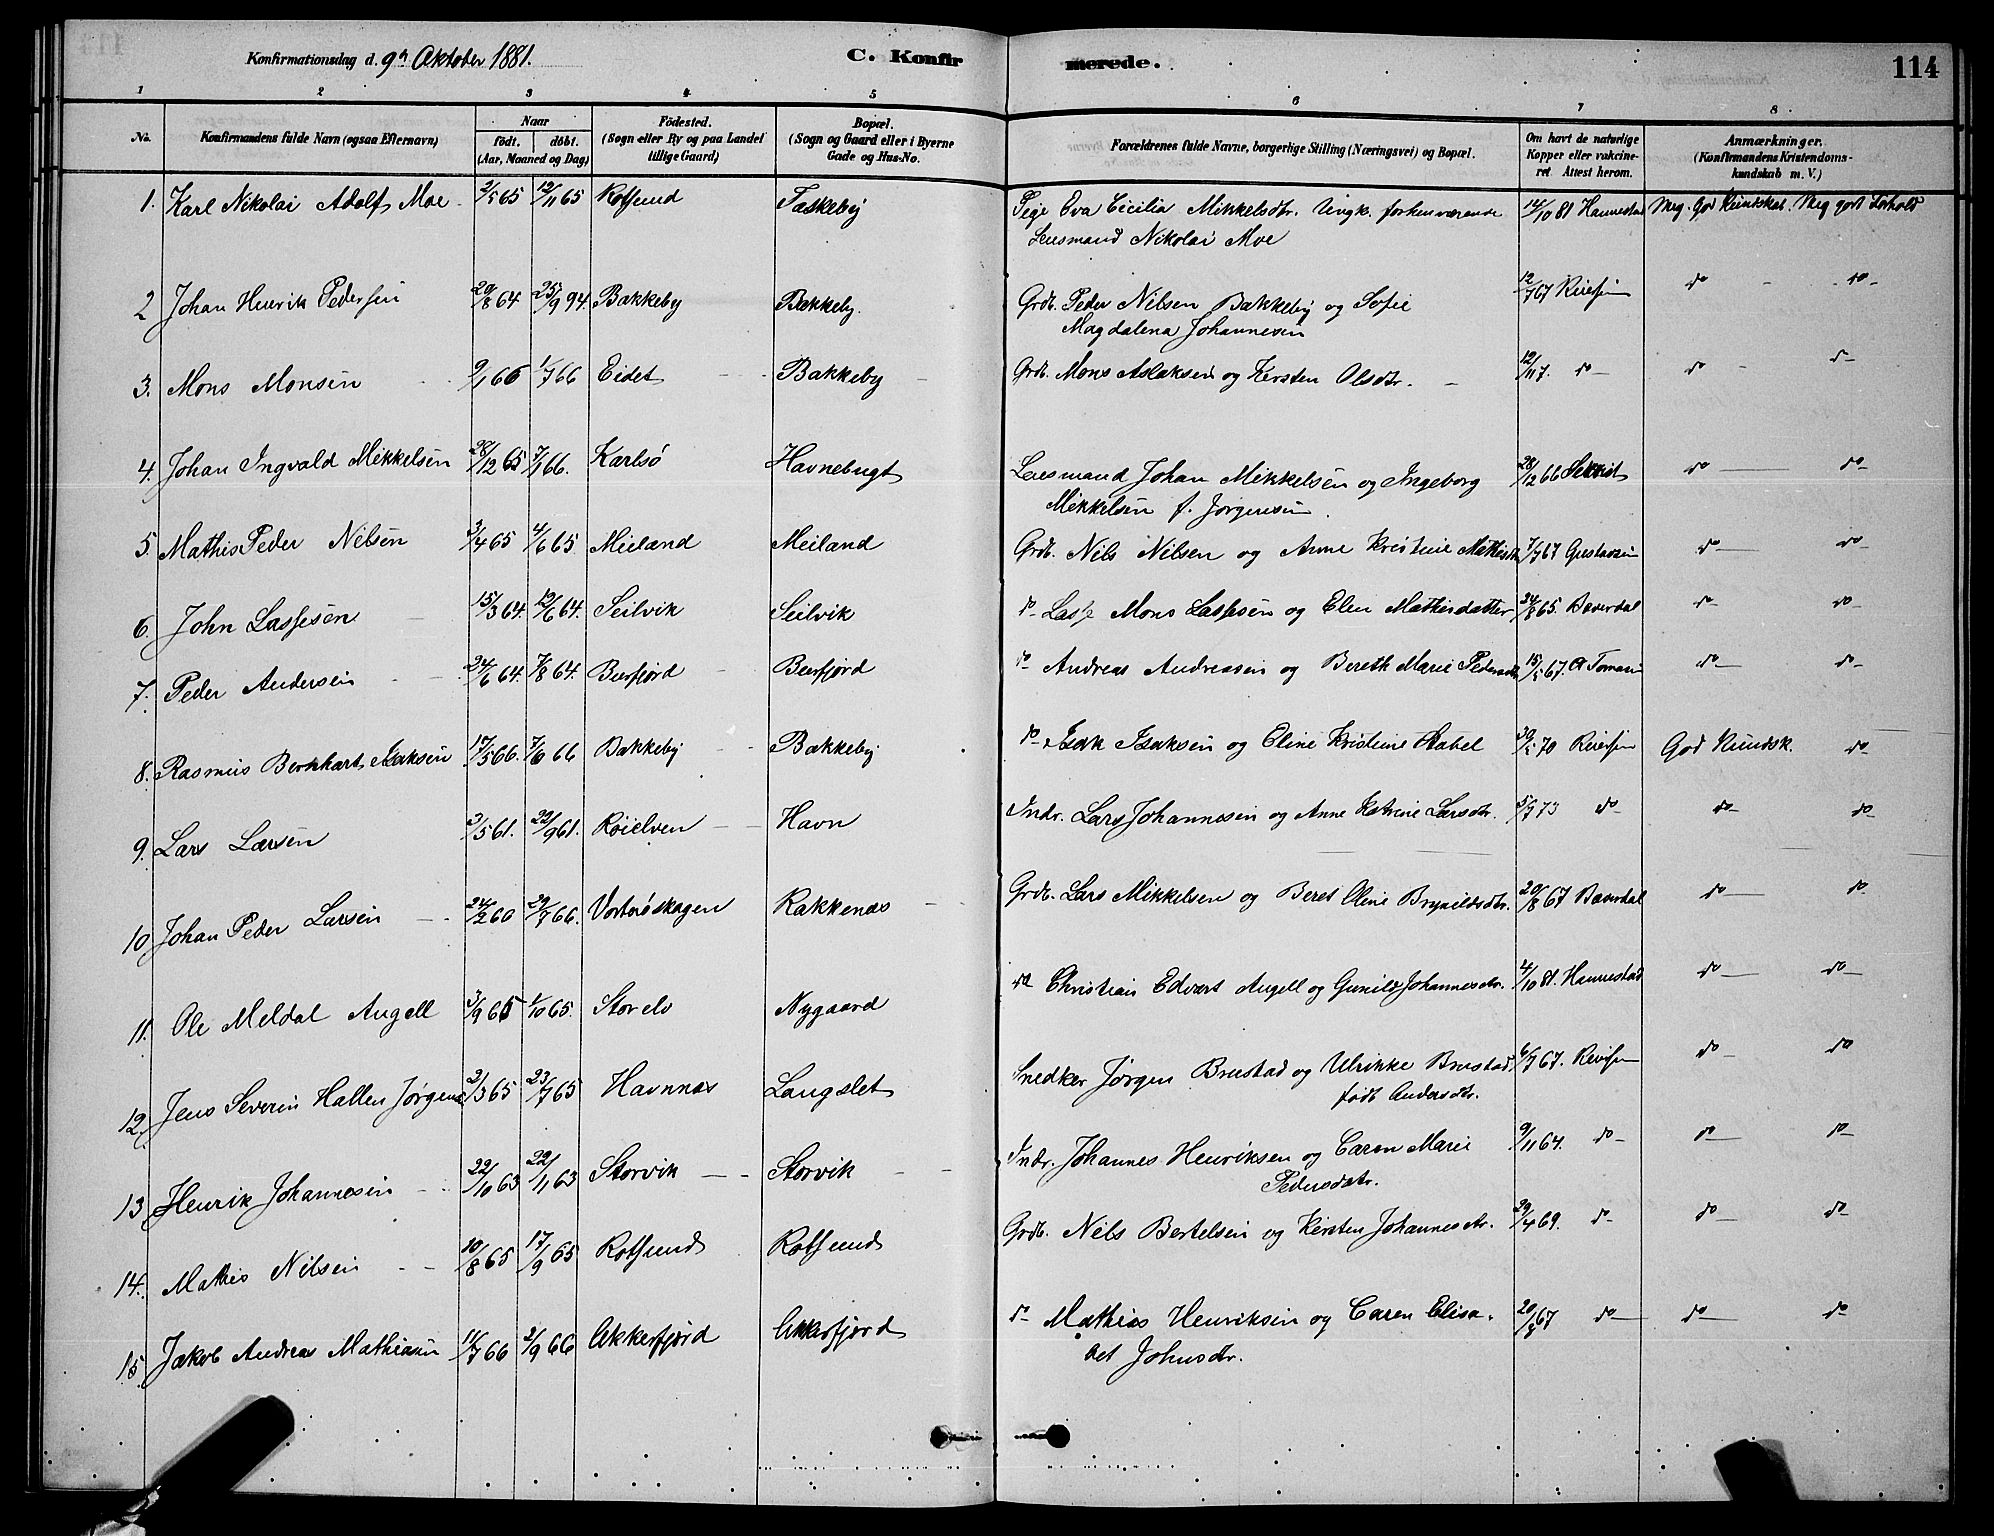 Konfirmationsdag d. 9n Oktober 1881. C. Konfirmerede. 114
1 2 3 4 5 6 7 8
No. Konfirmandens fulde Navn (ogsaa Efternavn) Naar födt. döbt. (Aar, Maaned og Dag) Födested. (Sogn eller By og paa Landet tillige Gaard) Bopæl. (Sogn og Gaard eller i Byerne Gade og Hus-No. Forældrenes fulde Navne, borgerlige Stilling (Næringsvei) og Bopæl. Om havt de naturlige Kopper eller vakcineret Attest herom. Anmærkninger. (Konfirmandens Kristendomskundskab m. V.)
1. Karl Nikolai Adolf Moe 2/5 65 12/11 65 Rotsund Taskeby Pige Eva Cicilia Mikkelsdtr. Ungk. forhenværende 14/10 81 Hannestad Meg. God Kundskab. Meg godt Forhold
Lensmand Nikolai Moe
2 Johan Henrik Pedersen 20/8 64 25/9 94. Bakkeby Bakkeby. Grdb. Peder Nilsen Bakkeby og Sofie 12/7 67 Reiersen do do
Magdalena Johannesen
3. Mons Monsen 9/1 66 1/7 66 Eidet Bakkeby Grdb. Mons Aslaksen og Kersten Olsdtr. 12/11 7. do do do
4. Johan Ingvald Mikkelsen 28/12 65 7/1 66. Karlsö Havnebugt Lensmand Johan Mikkelsen og Ingeborg 28/12 66 do do
Mikkelsen f. Jörgensen.
5. Mathis Peder Nilsen 3/4 65 4/6 65. Meiland Meiland Grdb. Nils Nilsen og Anne Kristine Mathisdtr 7/7 67 Gustavsen do do
6. John Lassesen 15/3 64. 12/6 64. Seilvik Seilvik do Lasse Mons Lassesen og Elen Mathisdatter 24/8 65. Bæverdal do do
7. Peder Andersen 24/6 64. 7/8 64. Burfjord Burfjord do Andreas Andreassen og Bereth Marie Pedersdtr 15/5 67. do do
8. Rasmus Bernhart Isaksen 17/5 66. 7/6 66 Bakkeby Bakkeby do Isak Isaksen og Eline Kristine Stabel 30/5 70 Reiersen God Kundsk. do
9. Lars Larsen 3/5 61. 22/9 61. Röielven Havn Indr. Lars Johannesen og Anne Katrine Larsdtr. 5/7 73 do do do
10 Johan Peder Larsen 24/2 60 29/7 66. Vorteröskagen Rakkenæs Grdb. Lars Mikkelsen og Beret Oline Brynildsdtr. 20/8 67 Bæverdal do do
11. Ole Meldal Angell 3/9 65 1/10 65. Storelv Nygaard do Christian Edvart Angell og Gunild Johannesdtr. 4/10 81. Hannestad do do
12. Jens Severin Hallen Jörgens 2/3 65 23/7 65 Havnnæs Langslet Snedker Jörgen Brustad og Ulrikke Brustad 6/7 67. Reiersen do do
födt Andersdtr.
13 Henrik Johannesen 22/10 63 22/11 63 Storvik Storvik Indr. Johannes Henriksen og Caren Marie 9/11 64. do do do
Pedersdatr.
14. Mathis Nilsen 10/8 65 17/9 65 Rotsund Rotsund Grdb. Nils Bertelsen og Kersten Johannesdtr. 29/4 69. do do do
15. Jakob Andreas Mathiasen 11/7 66 2/9 66 Akkerfjord Akkerfjord do Mathias Henriksen og Caren Elisa- 20/7 67 do do do
bet Johnsdtr.